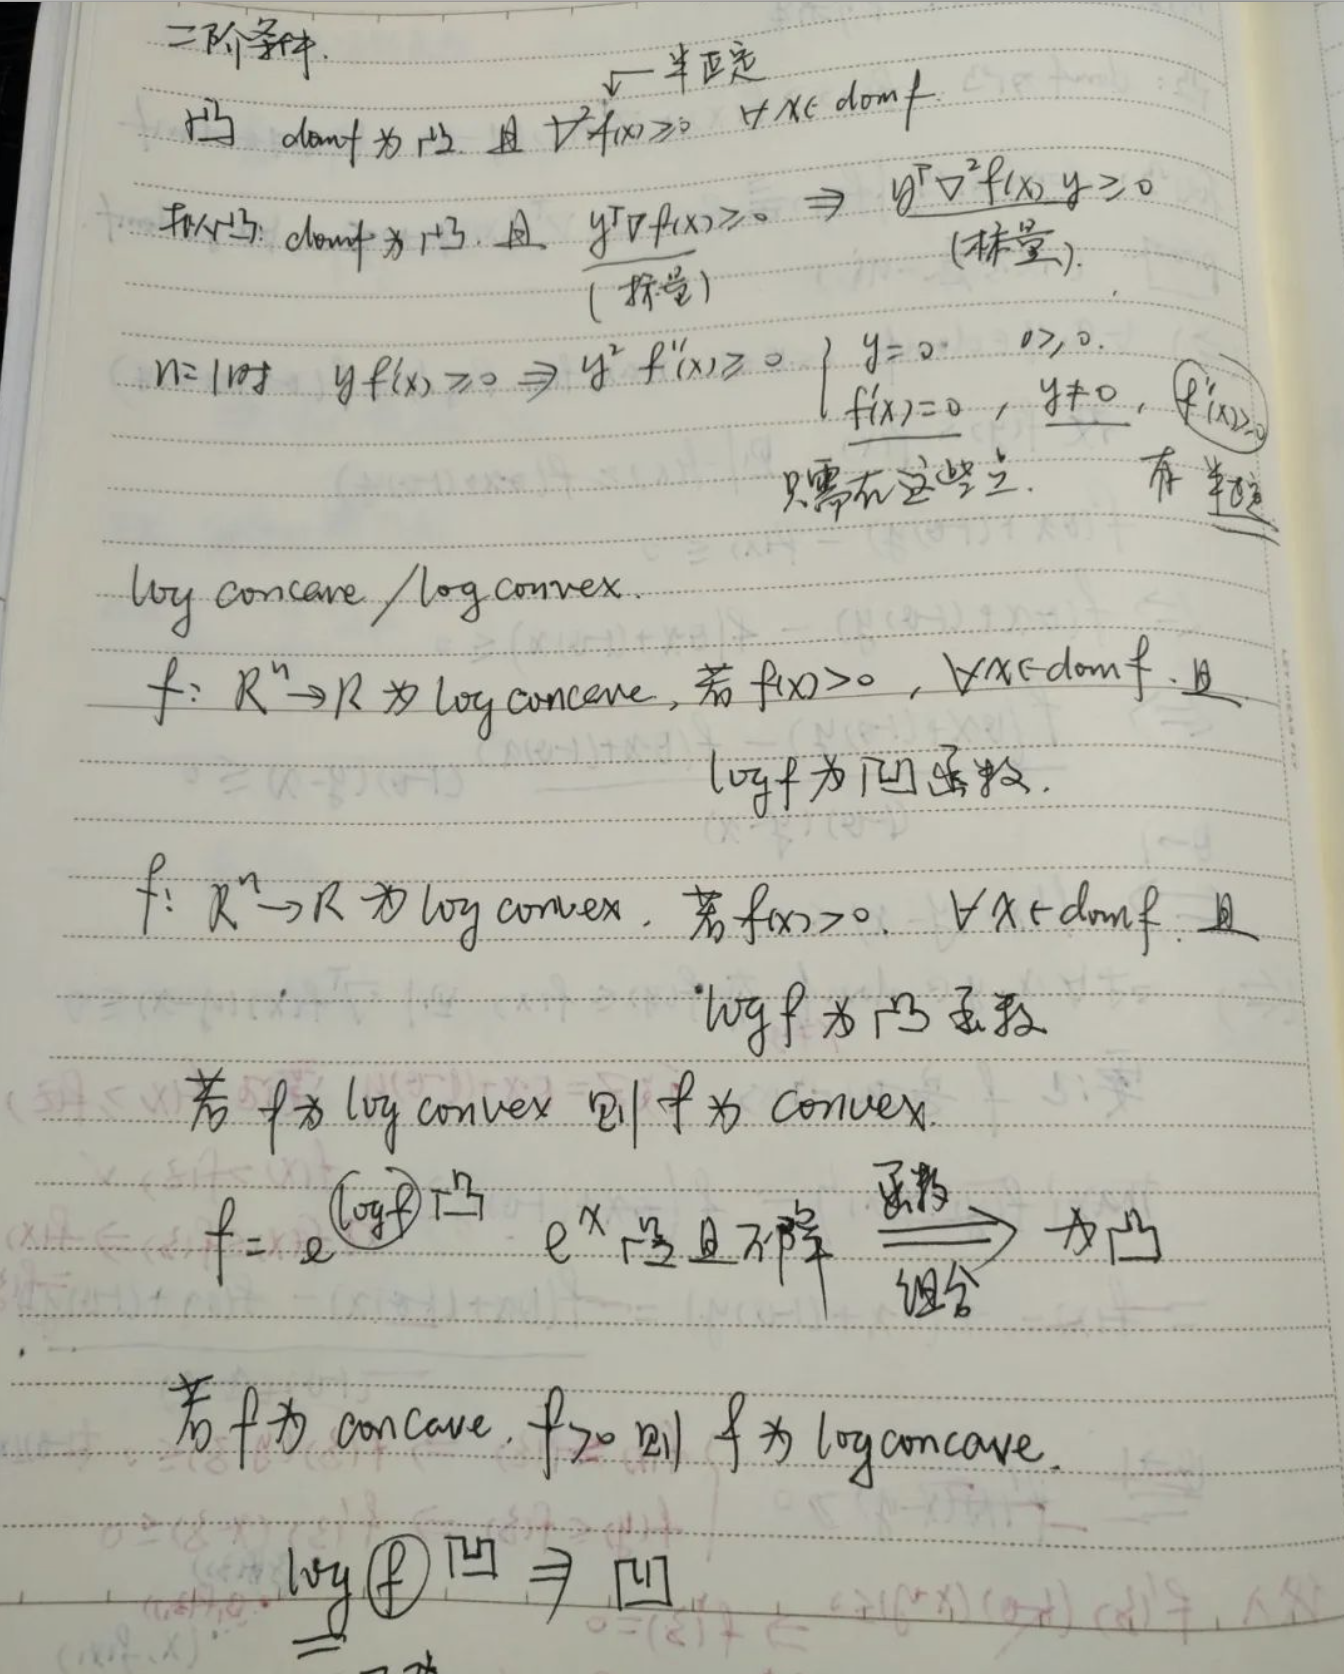 二阶条件.
← 半正定
凸 domf 为凸. 且 ∇²f(x)≥0 ∀x∈domf.
拟凸: domf为凸. 且 yᵀ∇f(x)≥0 ⇒ yᵀ∇²f(x)y≥0
(标量) (标量).
n=1时 yf'(x)≥0 ⇒ y²f''(x)≥0 { y=0 0≥0.
f'(x)=0, y≠0, f''(x)≥0
只需在这些点. 有半正定
log concave/log convex.
f: Rⁿ→R 为 log concave, 若 f(x)>0, ∀x∈domf. 且
logf为凹函数.
f: Rⁿ→R 为 log convex. 若 f(x)>0. ∀x∈domf. 且
logf为凸函数
若 f为 log convex 则 f为 convex.
f = e^(logf) 凸 e^x 凸且不降 函数组合 ⇒ 为凸
若f为 concave. f>0 则 f为 log concave.
log f 凹 ⇒ 凹